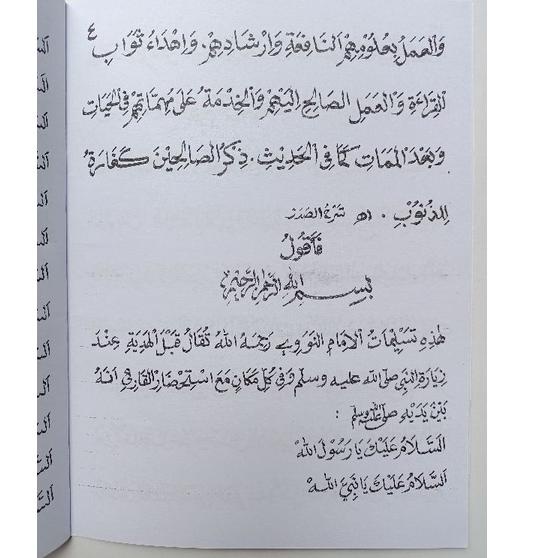 ٤
وَالْعَمَلُ بِعُلُومِهِمُ النَّافِعَةِ وَإِرْشَادِهِمْ. وَإِهْدَاءُ ثَوَابِ
الْقِرَاءَةِ وَالْعَمَلِ الصَّالِحِ إِلَيْهِمْ وَالْخِدْمَةُ عَلَى مُهِمَّاتِهِمْ فِي الْحَيَاتِ
وَبَعْدَ الْمَمَاتِ كَمَا فِي الْحَدِيْثِ. ذِكْرُ الصَّالِحِيْنَ كَفَّارَةٌ
لِلذُّنُوْبِ. اهـ
فَأَقُولُ
بِسْمِ اللهِ الرَّحْمٰنِ الرَّحِيْمِ
هٰذِهِ تَسْلِيْمَاتُ الْإِمَامِ النَّوَوِيِ رَحِمَهُ اللهُ تُقَالُ قَبْلَ الْهَدِيَةِ عِنْدَ
زِيَارَةِ النَّبِيِّ صلى الله عليه وسلم وَفِي كُلِّ مَكَانٍ مَعَ اسْتِحْضَارِ الْقَارِئِ أَنَّهُ
بَيْنَ يَدَيْهِ صلى الله عليه وسلم :
اَلسَّلَامُ عَلَيْكَ يَا رَسُوْلَ اللهْ
اَلسَّلَامُ عَلَيْكَ يَا نَبِيَّ اللهْ